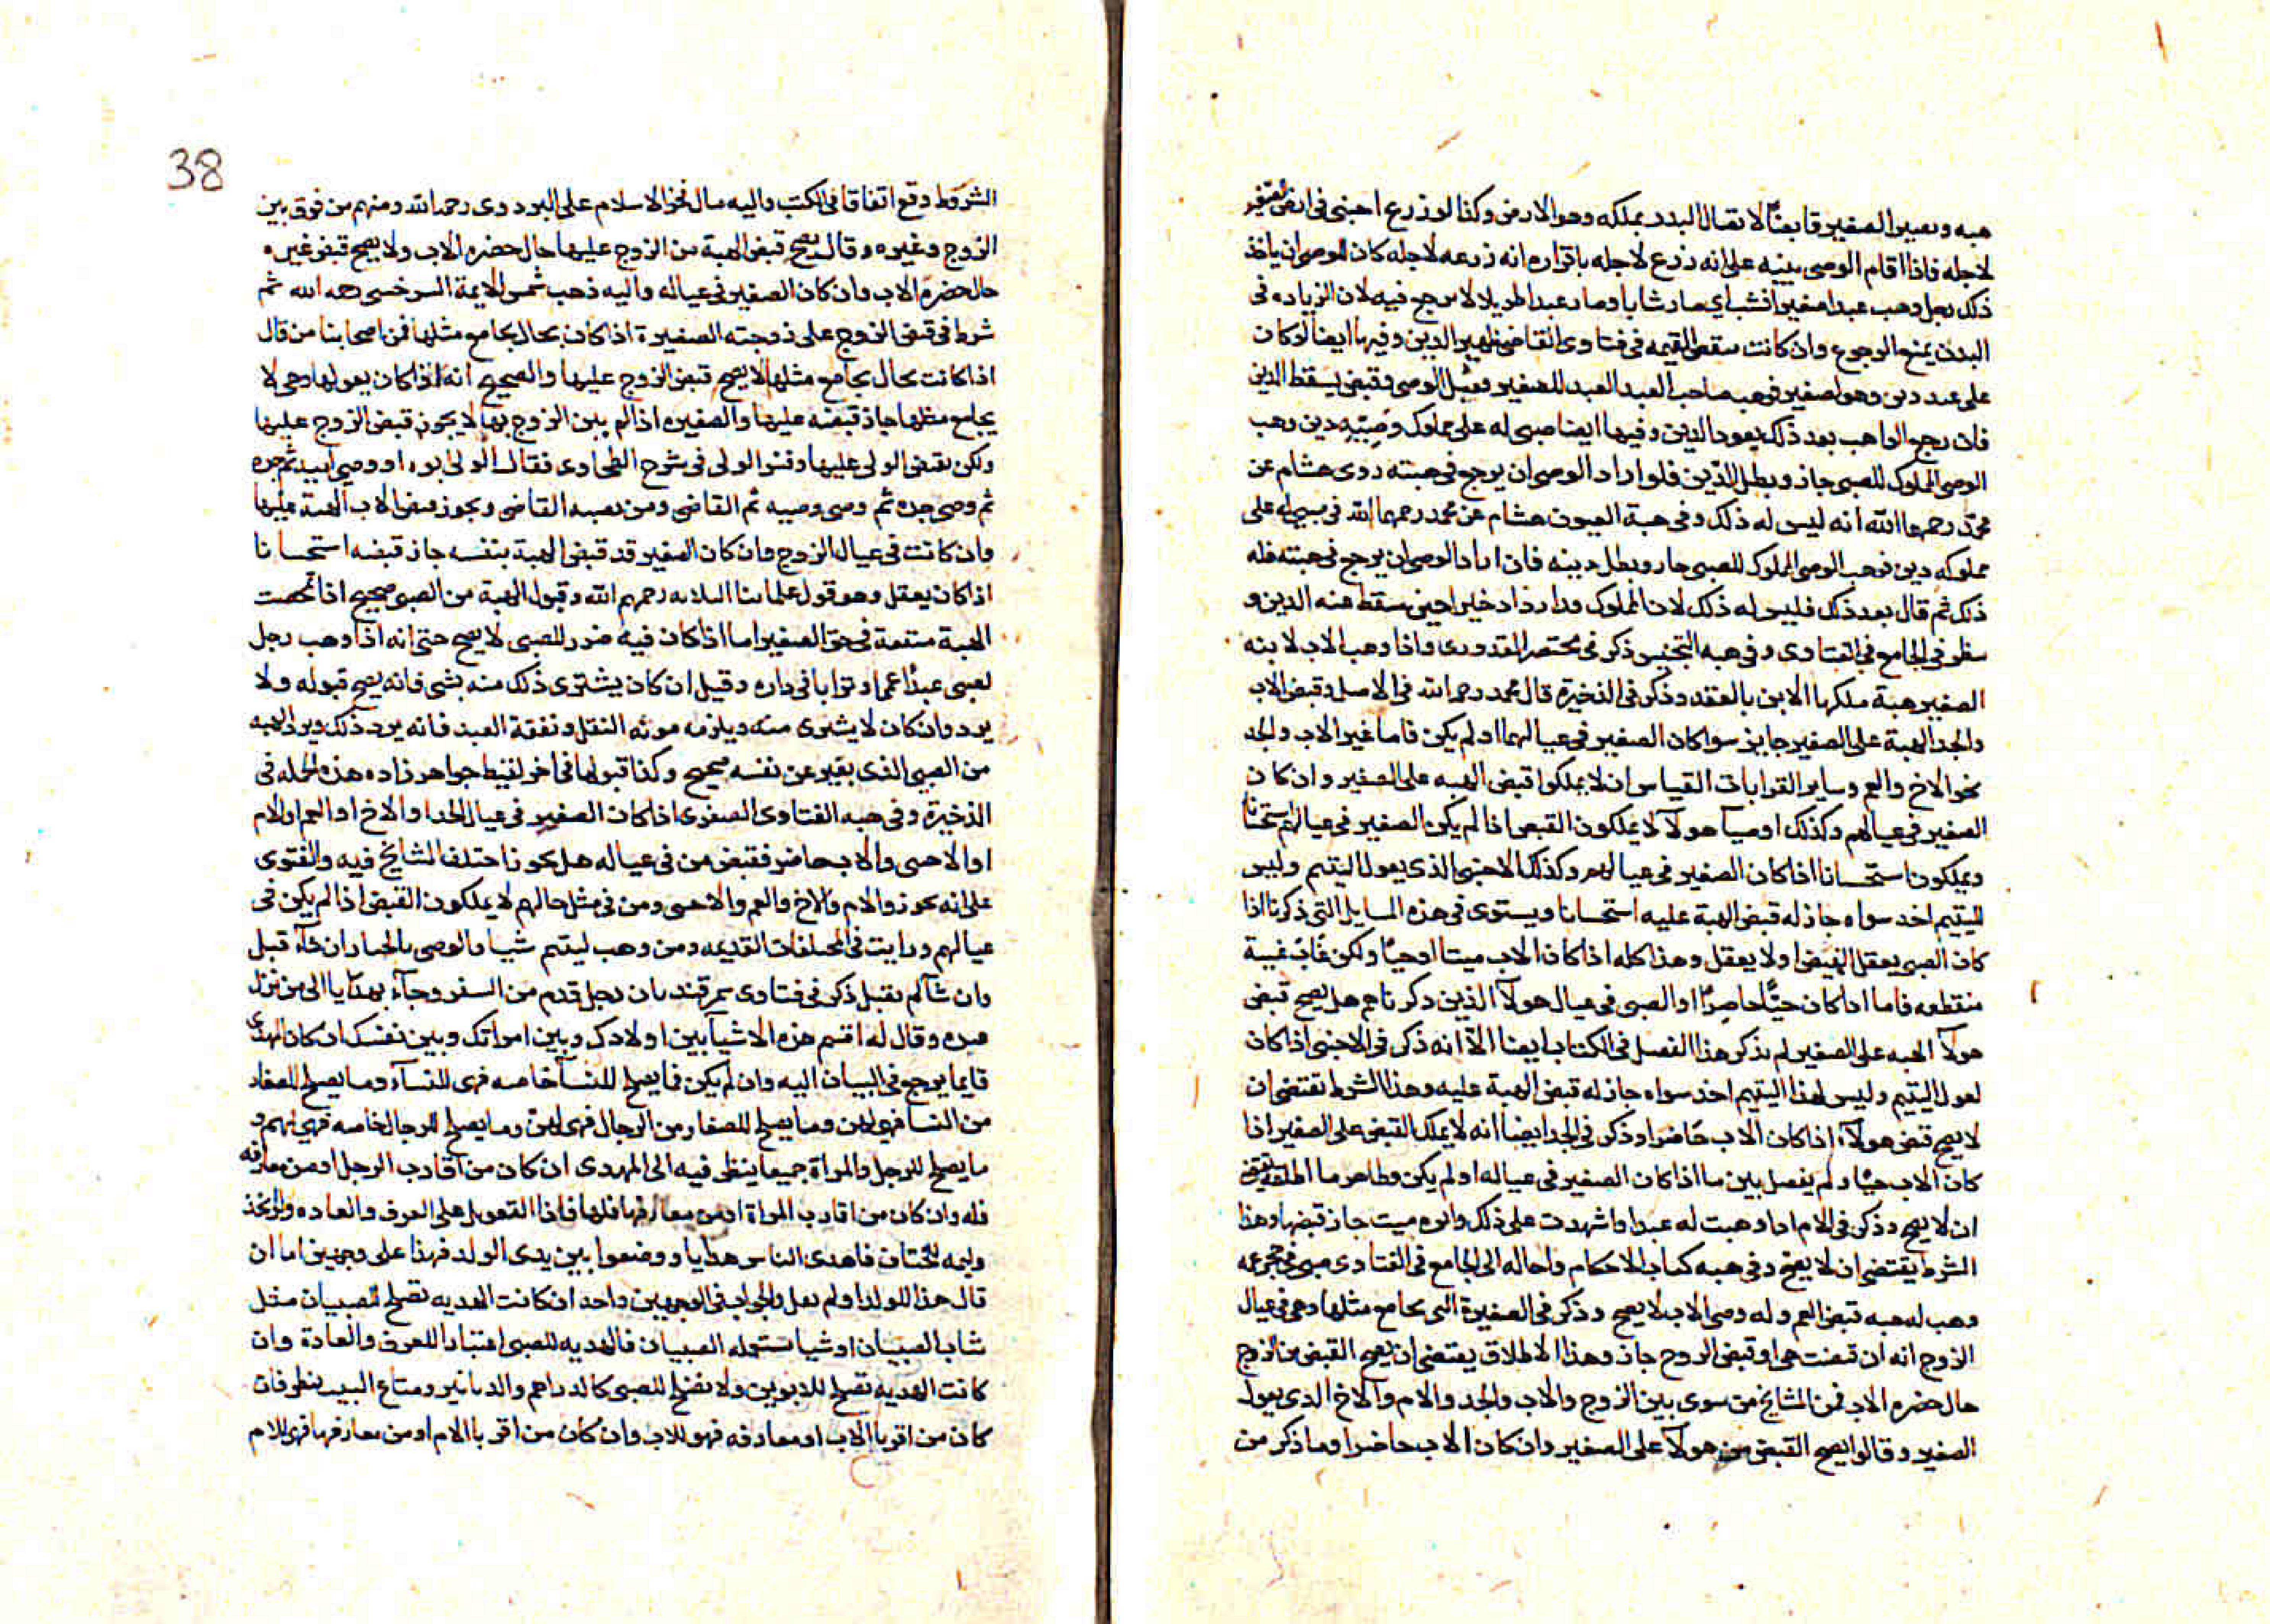 هبه ويصير الصغير قابضا لاتصال البدر بملكه وهو الارض وكذا لو زرع اجنبى فى ارض صغير
لاجله فاذا اقام الوصى بينه على انه زرع لاجله باقراره انه زرعه لاجله كان للوصى ان ياخذ
ذلك رجل وهب عبدا صغيرا فشب اى صار شابا وصار عبدا طويلا لا يرجع فيه لان الزياده فى
البدن يمنع الرجوع وان كانت ينقص القيمه فى فتاوى القاضى ظهير الدين وفيها ايضا لو كان
على عبد دين وهو لصغير فوهب صاحب العبد العبد للصغير وقبل الوصى وقبض يسقط الدين
فان رجع الواهب بعد ذلك يعود الدين وفيها ايضا صبى له على مملوك وصيه دين وهب
الوصى المملوك للصبى جاز وبطل الدين فلو اراد الوصى ان يرجع فى هبته روى هشام عن
محمد رحمهما الله انه ليس له ذلك وفى هبة العيون هشام عن محمد رحمهما الله فى صبى له على
مملوكه دين فوهب الوصى المملوك للصبى جاز وبطل دينه فان اراد الوصى ان يرجع فى هبته فله
ذلك ثم قال بعد ذلك فليس له ذلك لان المملوك قد ازداد خيرا حين سقط عنه الدين و
ينظر فى الجامع فى الفتاوى وفى هبه التجنيس ذكر فى مختصر القدورى واذا وهب الاب لابنه
الصغير هبة ملكها الابن بالعقد وذكر فى الذخيرة قال محمد رحمه الله فى الاصل وقبض الاب
والجد الهبة على الصغير جايز سوا كان الصغير فى عيالهما او لم يكن فاما غير الاب والجد
نحو الاخ والعم وساير القرابات القياس ان لا يملكوا قبض الهبه على الصغير وان كان
الصغير فى عيالهم وكذلك اوصيا هولا لا يملكون القبض اذا لم يكن الصغير فى عيالهم استحسانا
ويملكون استحسانا اذا كان الصغير فى عيالهم وكذلك الاجنبى الذى يعول اليتيم وليس
لليتيم احد سواه جاز له قبض الهبة عليه استحسانا ويستوى فى هذه المسايل التى ذكرنا اذا
كان الصبى يعقل القبض او لا يعقل وهذا كله اذا كان الاب ميتا او حيا ولكن غاب غيبة
منقطعه فاما اذا كان حيا حاضرا او الصبى فى عيال هولا الذين ذكرناهم هل يصح قبض
هولا الهبه على الصغير لم يذكر هذا الفصل فى الكتاب ايضا الا انه ذكر فى الاجنبى اذا كان
يعول اليتيم وليس لهذا اليتيم احد سواه جاز له قبض الهبة عليه وهذا الشرط يقتضى ان
لا يصح قبض هولا اذا كان الاب حاضرا وذكر فى الجد ايضا انه لا يملك القبض على الصغير اذا
كان الاب حيا ولم يفصل بين ما اذا كان الصغير فى عياله او لم يكن وظاهر ما اطلق يقتضى
ان لا يصح وذكر فى الام اذا وهبت له عبدا واشهدت على ذلك وابوه ميت جاز قبضها وهذا
الشرط يقتضى ان لا يصح وفى هبه كتاب الاحكام واحاله الى الجامع فى الفتاوى صبى فى حجر عمه
وهب له هبه فقبض العم وله وصى الاب لا يصح وذكر فى الصغيرة التى يجامع مثلها وهى فى عيال
الزوج انه ان قبضت هى او قبض الزوج جاز وهذا الاطلاق يقتضى ان يصح القبض من الزوج
حال حضره الاب فمن المشايخ من سوى بين الزوج والاب والجد والام والاخ الذى يعول
الصغير وقالوا يصح القبض من هولا على الصغير وان كان الاب حاضرا وما ذكر من
38
الشروط وقع اتفاقا فى الكتب واليه مال فخر الاسلام على البزدوى رحمه الله ومنهم من فرق بين
الزوج وغيره وقال يصح قبض الهبة من الزوج عليها حال حضره الاب ولا يصح قبض غيره
حال حضرة الاب وان كان الصغير فى عياله واليه ذهب شمس الايمة السرخسى رحمه الله ثم
شرط فى قبض الزوج على زوجته الصغيرة اذا كان بحال يجامع مثلها فمن اصحابنا من قال
اذا كانت بحال يجامع مثلها لا يصح قبض الزوج عليها والصحيح انه اذا كان يعولها وهى لا
يجامع مثلها جاز قبضه عليها والصغيره اذا لم يبن الزوج بها لا يجوز قبض الزوج عليها
ولكن يقبض الولى عليها وفسر الولى فى شرح الطحاوى فقال الولى ابوه او وصى ابيه ثم جده
ثم وصى جده ثم وصى وصيه ثم القاضى ومن نصبه القاضى ويجوز قبض الاب الهبة عليها
وان كانت فى عيال الزوج وان كان الصغير قد قبض الهبة بنفسه جاز قبضه استحسانا
اذا كان يعقل وهو قول علمائنا الثلاثه رحمهم الله وقبول الهبة من الصبى صحيح اذا تمحضت
الهبة منفعة فى حق الصغير اما اذا كان فيه ضرر للصبى لا يصح حتى انه اذا وهب رجل
لصبى عبدا اعمى او ترابا فى داره وقيل ان كان يشترى ذلك منه بشى فانه يصح قبوله ولا
يرد وان كان لا يشترى منه ويلزمه مونه النقل ونفقة العبد فانه يرد ذلك ويرد الهبه
من الصبى الذى يعبر عن نفسه صحيح وكذا قبولها فى اخر لقيط جواهر زاده هذه الجمله فى
الذخيرة وفى هبه الفتاوى الصغرى اذا كان الصغير فى عيال الجد او الاخ او العم او الام
او الاجنبى والاب حاضر فقبض من فى عياله هل يجوز اختلف المشايخ فيه والفتوى
على انه يجوز والام والاخ والعم والاجنبى ومن فى مثل حالهم لا يملكون القبض اذا لم يكن فى
عيالهم ورايت فى المختلفات القديمه ومن وهب ليتيم شيا فالوصى بالخيار ان شاء قبل
وان شا لم يقبل ذكر فى فتاوى سمرقند بان رجل قدم من السفر وجاء بهدايا الى من نزل
عنده وقال له اقسم هذه الاشيا بين اولادك وبين امراتك وبين نفسك ان كان المهدى
قايما يرجع فى البيان اليه وان لم يكن فما يصلح للنسا خاصه فهى للنسآء وما يصلح للصغار
من النسا فهى لهن وما يصلح للصغار من الرجال فهى لهن وما يصلح للرجال خاصه فهى لهم و
ما يصلح للرجل والمراة جميعا ينظر فيه الى المهدى ان كان من اقارب الرجل او من معارفه
فله وان كان من اقارب المراة او من معارفها فلها فاذا التعويل على العرف والعاده ولو اتخذ
وليمه للختان فاهدى الناس هدايا ووضعوا بين يدى الولد فهذا على وجهين اما ان
قال هذا للولد او لم يقل والجواب فى الوجهين واحد ان كانت الهديه تصلح للصبيان مثل
ثياب الصبيان او شيا تستعمله الصبيان فالهديه للصبى اعتبارا للعرف والعادة وان
كانت الهديه تصلح للابوين ولا تصلح للصبى كالدراهم والدنانير ومتاع البيت ينظر فان
كان من اقربا الاب او معارفه فهو للاب وان كان من اقربا الام او من معارفها فهى للام